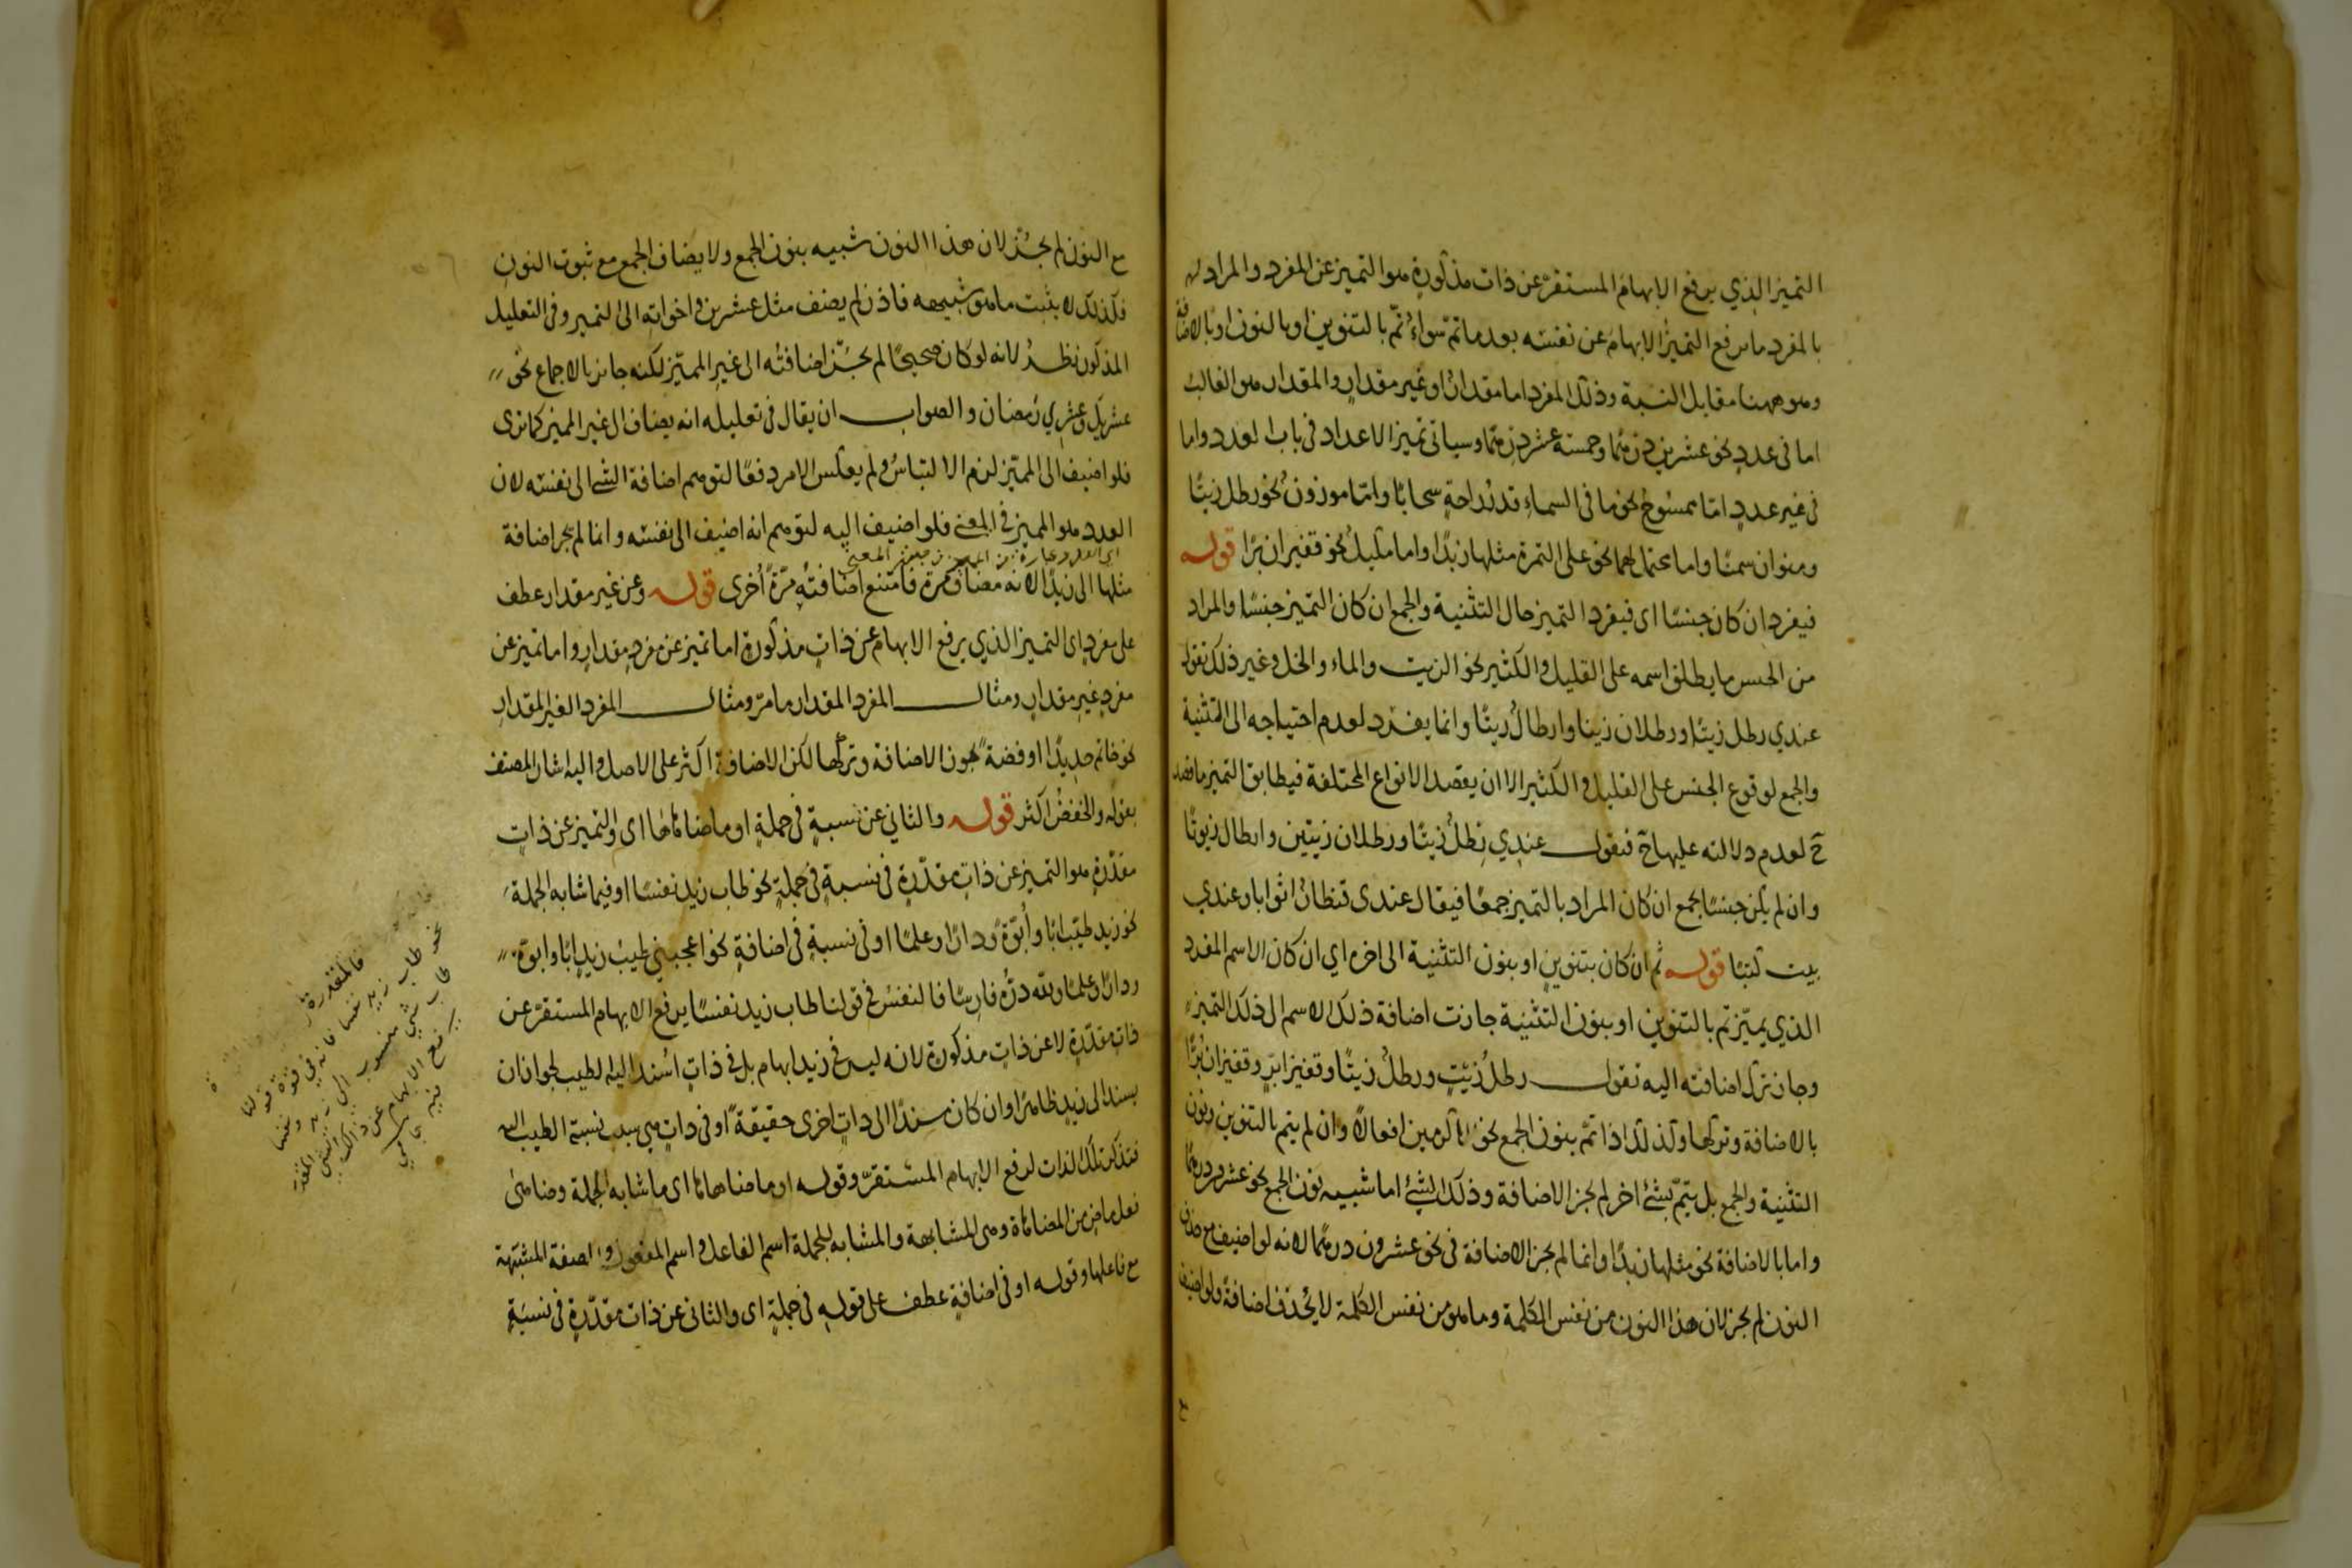 التميز الذي يرفع الابهام المستقر عن ذات مذكورة هو التميز عن المفرد والمراد
بالمفرد ما يرفع التميز الابهام عن نفسه بعد ما تم سواء تم بالتنوين او بالنون او بالاضافة
وهو ههنا مقابل النسبة وذلك المفرد اما مقدار او غير مقدار والمقدار هو الغالب
اما في عدد نحو عشرين درهما وخمسة عشر درهما وسياتي تميز الاعداد في باب العدد واما
في غير عدد اما ممسوح نحو ما في السماء قدر راحة سحابا واما موزون نحو رطل زيتا
ومنوان سمنا واما نحو على التمرة مثلها زبدا واما مكيل نحو قفيزان برا قوله
فيفرد ان كان جنسا اى فيفرد التميز حال التثنية والجمع ان كان التميز جنسا والمراد
من الجنس ما يطلق اسمه على القليل والكثير نحو الزيت والماء والخل وغير ذلك تقول
عندي رطل زيتا ورطلان زيتا وارطال زيتا وانما يفرد لعدم احتياجه الى التثنية
والجمع لوقوع الجنس على القليل والكثير الا ان يقصد الانواع المختلفة فيطابق التميز ما قصد
ح لعدم دلالته عليها ح فيقول عندي رطل زيتا ورطلان زيتين وارطال زيوتا
وان لم يكن جنسا يجمع ان كان المراد بالتميز جمعا فيقال عندى قنطار اثوابا وعندي
بيت كتبا قوله ثم ان كان بتنوين او بنون التثنية الى اخره اي ان كان الاسم المفرد
الذي يميز تم بالتنوين او بنون التثنية جازت اضافة ذلك الاسم الى ذلك التميز
وجاز ترك اضافته اليه تقول رطل زيت ورطل زيتا وقفيزا بر وقفيزان برا
بالاضافة وتركها وكذلك اذا تم بنون الجمع نحو الاكرمين افعالا وان لم يتم بالتنوين ونون
التثنية والجمع بل يتم بشئ اخر لم يجز الاضافة وذلك الشئ اما شبيه نون الجمع نحو عشرون درهما
واما بالاضافة نحو مثلها زبدا وانما لم يجز الاضافة في نحو عشرون درهما لانه لو اضيف مع حذف
النون لم يجز لان هذا النون من نفس الكلمة وما هو من نفس الكلمة لا يحذف اضافة ولو اضيف
مع النون لم يجز لان هذا النون شبيه بنون الجمع ولا يضاف الجمع مع ثبوت النون
فكذلك لا يثبت ما هو شبيهه فاذن لم يضف مثل عشرين واخواته الى التميز وفي التعليل
المذكور نظر لانه لو كان صحيحا لم يجز اضافته الى غير المميز لكنه جائز بالاجماع نحو
عشريك وعشري رمضان والصواب ان يقال في تعليله انه يضاف الى غير المميز كما ترى
فلو اضيف الى المميز لزم الالتباس ولم يعكس الامر دفعا لتوهم اضافة الشئ الى نفسه لان
العدد هو المميز في المعنى فلو اضيف اليه لتوهم انه اضيف الى نفسه وانما لم يجز اضافة
مثلها الى زبدا لانه مضاف مرة فامتنع اضافته مرة اخرى قوله وعن غير مقدار عطف
على مفرد اى التميز الذي يرفع الابهام عن ذات مذكورة اما تميز عن مفرد مقدار واما تميز عن
مفرد غير مقدار ومثال المفرد المقدار ما مر ومثال المفرد الغير المقدار
نحو خاتم حديدا او فضة يجوز الاضافة وتركها لكن الاضافة اكثر على الاصل واليه اشار المصنف
بقوله والخفض اكثر قوله والثاني عن نسبة في جملة او ما ضاهاها اى والتميز عن ذات
مقدرة هو التميز عن ذات مقدرة في نسبة في جملة نحو طاب زيد نفسا او فيما شابه الجملة
نحو زيد طيب ابا وابوة ودارا وعلما او في نسبة في اضافة نحو اعجبني طيب زيد ابا وابوة
ودارا وعلما ولله دره فارسا فالنفس في قولنا طاب زيد نفسا يرفع الابهام المستقر عن
ذات مقدرة لا عن ذات مذكورة لانه ليس في زيد ابهام بل في ذات اسند اليه الطيب لجواز ان
يسند الى زيد ظاهرا وان كان مسندا الى ذات اخرى حقيقة او في ذات هي سبب نسبة الطيب اليه
فتذكر تلك الذات لرفع الابهام المستقر وقوله او ما ضاهاها اى ما شابه الجملة وضاهى
فعل ماض من المضاهاة وهى المشابهة والمشابه للجملة اسم الفاعل واسم المفعول والصفة المشبهة
مع فاعلها وقوله او في اضافة عطف على قوله في جملة اى والثاني عن ذات مقدرة في نسبة
فالمقدرة
نحو طاب زيد نفسا فانه في قوة قولنا
طاب شي منسوب الى زيد ونفسا
يرفع الابهام عن ذلك الشي المقدر
فيه جامي